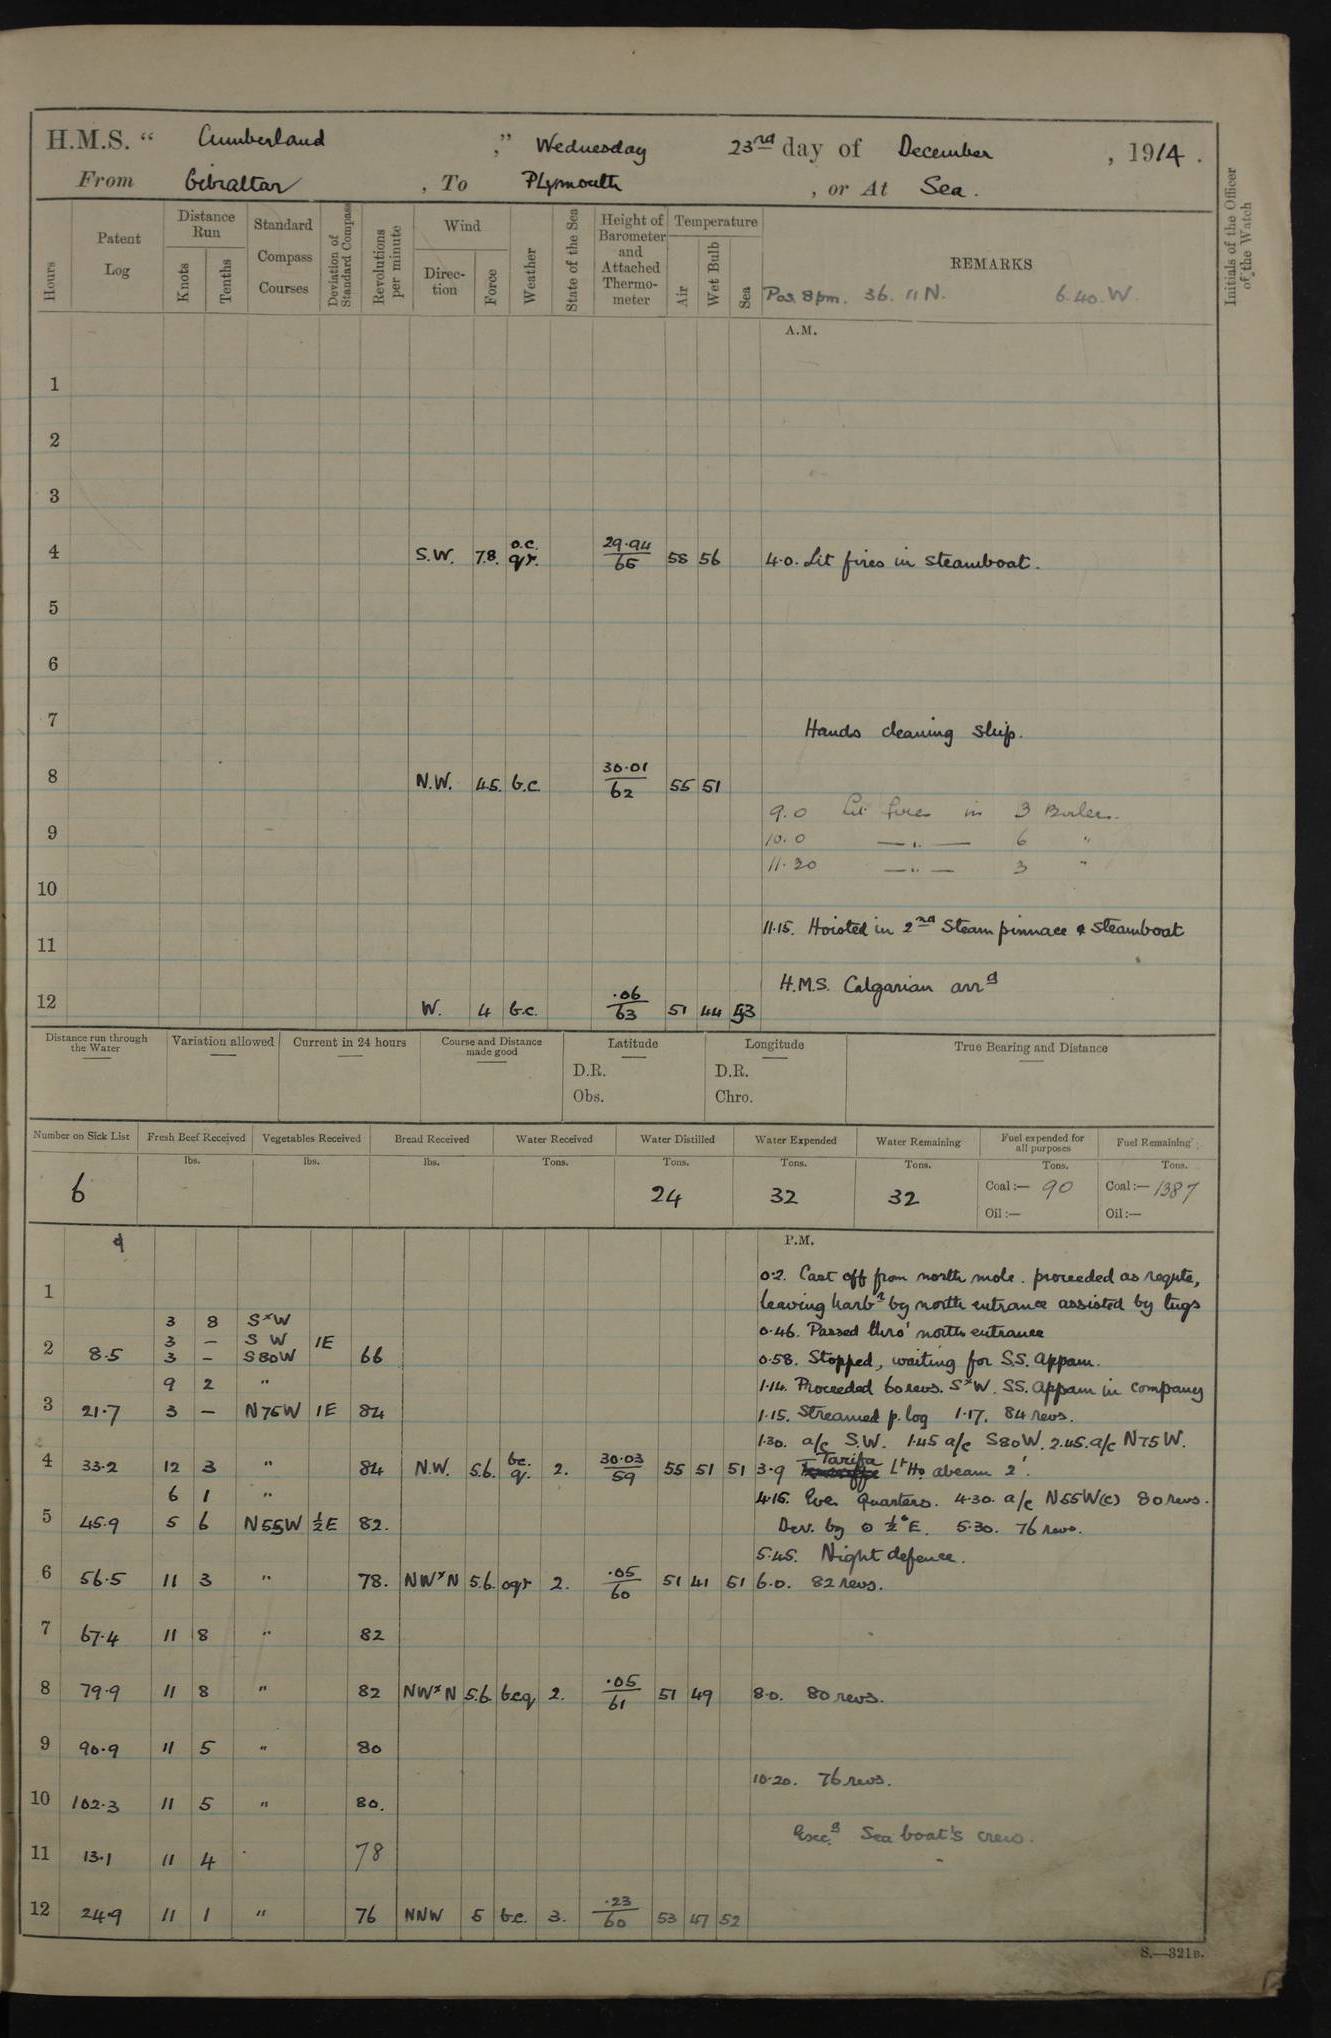 H.M.S. “ Cumberland ,” Wednesday 23rd day of December , 1914 .
From Gibraltar , To Plymouth , or At Sea .
Hours
Patent Log
Distance Run
Knots
Tenths
Standard Compass Courses
Deviation of Standard Compass
Revolutions per minute
Wind
Direc-tion
Force
Weather
State of the Sea
Height of Barometer and Attached Thermo-meter
Temperature
Air
Wet Bulb
Sea
REMARKS
Initials of the Officer of the Watch
Pos. 8pm. 36. 11 N. 6.40. W.
A.M.
1
2
3
4 S.W. 7.8. o.c. q.r. 29.94/65 58 56 4.0. Lit fires in steamboat.
5
6
7 Hands cleaning ship.
8 N.W. 4.5. b.c 30.01/62 55 51
9.0 Lit fires in 3 Boilers.
9
10.0 —„— 6 "
11.20 —„— 3 "
10
11.15. Hoisted in 2nd Steam pinnace & steamboat
11
H.M.S. Calgarian arrd
12 W. 4 b.c. .06/63 51 44 53
Distance run through the Water
Variation allowed
Current in 24 hours
Course and Distance made good
Latitude
D.R.
Obs.
Longitude
D.R.
Chro.
True Bearing and Distance
Number on Sick List
Fresh Beef Received
Vegetables Received
Bread Received
Water Received
Water Distilled
Water Expended
Water Remaining
Fuel expended for all purposes
Fuel Remaining
lbs. lbs. lbs. Tons. Tons. Tons. Tons. Tons. Tons.
6 24 32 32 Coal :— 90 Coal :— 1387
Oil :— Oil :—
P.M.
0.2. Cast off from north mole. proceeded as requte,
1
leaving harbr by north entrance assisted by tugs
3 8 SxW
0.46. Passed thro' north entrance
3 — S W 1E
2 8.5 3 — S80W 66 0.58. Stopped, waiting for S.S. Appam.
9 2 " 1.14. Proceeded 60 revs. SxW. SS. Appam in company
3 21.7 3 — N75W 1E 84 1.15. Streamed p. log 1.17. 84 revs.
1.30. a/c S.W. 1.45 a/c S80W. 2.45. a/c N75W.
4 33.2 12 3 " 84 N.W. 5.6. bc. q. 2. 30.03/59 55 51 51 3.9 Tarifa Lt Ho abeam 2'.
6 1 " 4.15. Eve. Quarters. 4.30. a/c N55W(c) 80 revs.
5 45.9 5 6 N55W ½E 82. Dev. by ⊙ ½°E. 5.30. 76 revs.
5.45. Night defence.
6 56.5 11 3 " 78. NWxN 5.6. oqr 2. .05/60 51 41 51 6.0. 82 revs.
7 67.4 11 8 " 82
8 79.9 11 8 " 82 NWxN 5.6. bcq 2. .05/61 51 49 8.0. 80 revs.
9 90.9 11 5 " 80
10.20. 76 revs.
10 102.3 11 5 " 80.
Execd Sea boat's crew.
11 13.1 11 4 78
12 24.9 11 1 " 76 NNW 5 b.c. 3. .23/60 53 47 52
S.—321B.